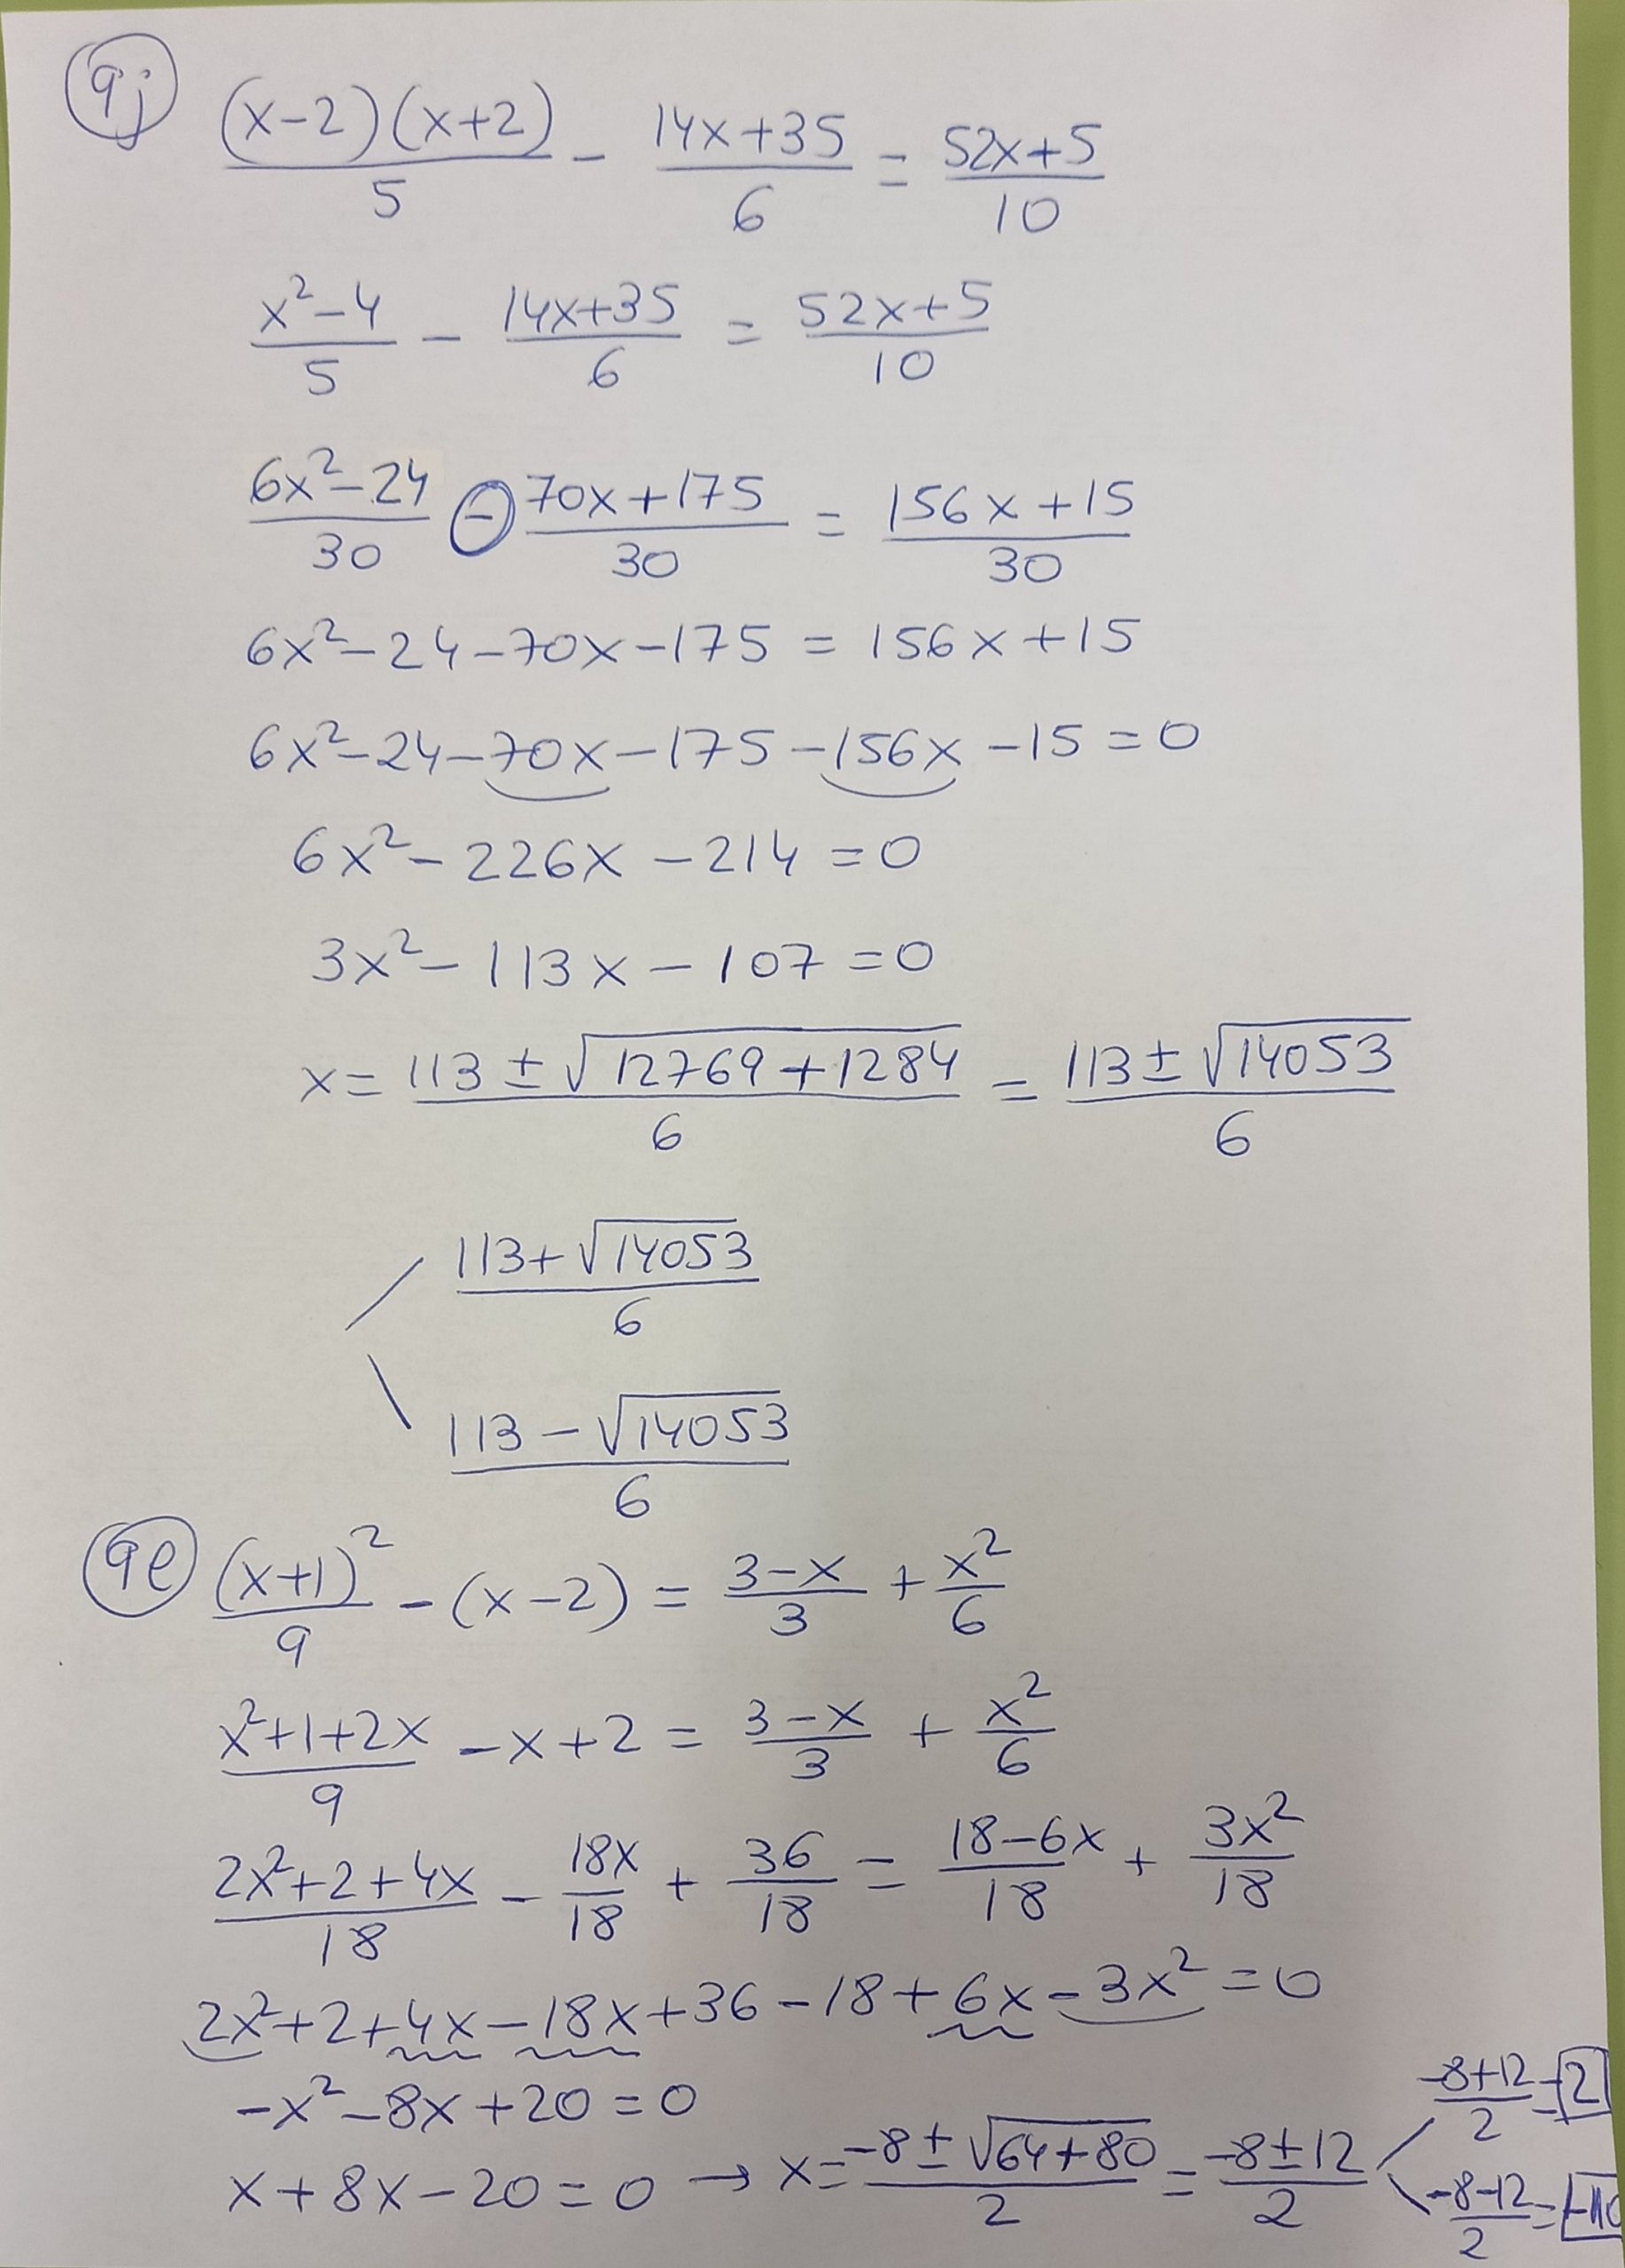 9j (x-2)(x+2)/5 - 14x+35/6 = 52x+5/10
x²-4/5 - 14x+35/6 = 52x+5/10
6x²-24/30 - 70x+175/30 = 156x+15/30
6x²-24-70x-175 = 156x+15
6x²-24-70x-175-156x-15=0
6x²-226x-214=0
3x²-113x-107=0
x= 113±√12769+1284/6 = 113±√14053/6
113+√14053/6
113-√14053/6
9e (x+1)²/9 - (x-2) = 3-x/3 + x²/6
x²+1+2x/9 -x+2 = 3-x/3 + x²/6
2x²+2+4x/18 - 18x/18 + 36/18 = 18-6x/18 + 3x²/18
2x²+2+4x-18x+36-18+6x-3x²=0
-x²-8x+20=0
x+8x-20=0 → x= -8±√64+80/2 = -8±12/2
-8+12/2 = 2
-8-12/2 = -10